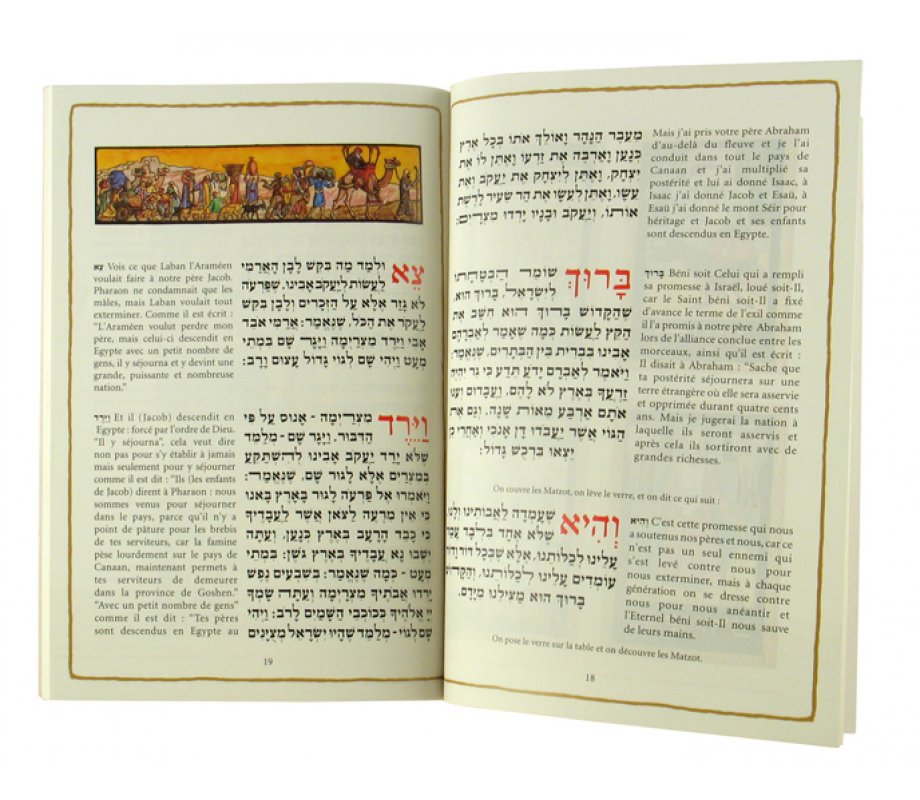 מֵעֵבֶר הַנָּהָר וָאוֹלֵךְ אוֹתוֹ בְּכָל אֶרֶץ
כְּנָעַן וָאַרְבֶּה אֶת זַרְעוֹ וָאֶתֵּן לוֹ אֶת
יִצְחָק, וָאֶתֵּן לְיִצְחָק אֶת יַעֲקֹב וְאֶת
עֵשָׂו, וָאֶתֵּן לְעֵשָׂו אֶת הַר שֵׂעִיר לָרֶשֶׁת
אוֹתוֹ, וְיַעֲקֹב וּבָנָיו יָרְדוּ מִצְרָיִם:
Mais j'ai pris votre père Abraham
d'au-delà du fleuve et je l'ai
conduit dans tout le pays de
Canaan et j'ai multiplié sa
postérité et lui ai donné Isaac, à
Isaac j'ai donné Jacob et Esaü, à
Esaü j'ai donné le mont Séir pour
héritage et Jacob et ses enfants
sont descendus en Egypte.
בָּרוּךְ שׁוֹמֵר הַבְטָחָתוֹ
לְיִשְׂרָאֵל, בָּרוּךְ הוּא,
שֶׁהַקָּדוֹשׁ בָּרוּךְ הוּא חִשַּׁב אֶת
הַקֵּץ לַעֲשׂוֹת כְּמָה שֶׁאָמַר לְאַבְרָהָם
אָבִינוּ בִּבְרִית בֵּין הַבְּתָרִים, שֶׁנֶּאֱמַר:
וַיֹּאמֶר לְאַבְרָם יָדֹעַ תֵּדַע כִּי גֵר יִהְיֶה
זַרְעֲךָ בְּאֶרֶץ לֹא לָהֶם, וַעֲבָדוּם וְעִנּוּ
אֹתָם אַרְבַּע מֵאוֹת שָׁנָה. וְגַם אֶת
הַגּוֹי אֲשֶׁר יַעֲבֹדוּ דָּן אָנֹכִי וְאַחֲרֵי כֵן
יֵצְאוּ בִּרְכֻשׁ גָּדוֹל:
בָּרוּךְ Béni soit Celui qui a rempli
sa promesse à Israël, loué soit-Il,
car le Saint béni soit-Il a fixé
d'avance le terme de l'exil comme
il l'a promis à notre père Abraham
lors de l'alliance conclue entre les
morceaux, ainsi qu'il est écrit :
Il disait à Abraham : "Sache que
ta postérité séjournera sur une
terre étrangère où elle sera asservie
et opprimée durant quatre cents
ans. Mais je jugerai la nation à
laquelle ils seront asservis et
après cela ils sortiront avec de
grandes richesses.
On couvre les Matzot, on lève le verre, et on dit ce qui suit :
וְהִיא שֶׁעָמְדָה לַאֲבוֹתֵינוּ וְלָנוּ
שֶׁלֹּא אֶחָד בִּלְבָד עָמַד
עָלֵינוּ לְכַלּוֹתֵנוּ, אֶלָּא שֶׁבְּכָל דּוֹר וָדוֹר
עוֹמְדִים עָלֵינוּ לְכַלּוֹתֵנוּ, וְהַקָּדוֹשׁ
בָּרוּךְ הוּא מַצִּילֵנוּ מִיָּדָם.
וְהִיא C'est cette promesse qui nous
a soutenus nos pères et nous, car ce
n'est pas un seul ennemi qui
s'est levé contre nous pour
nous exterminer, mais à chaque
génération on se dresse contre
nous pour nous anéantir et
l'Eternel béni soit-Il nous sauve
de leurs mains.
On pose le verre sur la table et on découvre les Matzot.
18
צֵא וּלְמַד מַה בִּקֵּשׁ לָבָן הָאֲרַמִּי
לַעֲשׂוֹת לְיַעֲקֹב אָבִינוּ, שֶׁפַּרְעֹה
לֹא גָזַר אֶלָּא עַל הַזְּכָרִים וְלָבָן בִּקֵּשׁ
לַעֲקֹר אֶת הַכֹּל, שֶׁנֶּאֱמַר: אֲרַמִּי אֹבֵד
אָבִי וַיֵּרֶד מִצְרַיְמָה וַיָּגָר שָׁם בִּמְתֵי
מְעָט וַיְהִי שָׁם לְגוֹי גָּדוֹל עָצוּם וָרָב:
צֵא Vois ce que Laban l'Araméen
voulait faire à notre père Jacob.
Pharaon ne condamnait que les
mâles, mais Laban voulait tout
exterminer. Comme il est écrit :
"L'Araméen voulut perdre mon
père, mais celui-ci descendit en
Egypte avec un petit nombre de
gens, il y séjourna et y devint une
grande, puissante et nombreuse
nation."
וַיֵּרֶד מִצְרַיְמָה - אָנוּס עַל פִּי
הַדִּבּוּר. וַיָּגָר שָׁם - מְלַמֵּד
שֶׁלֹּא יָרַד יַעֲקֹב אָבִינוּ לְהִשְׁתַּקֵּעַ
בְּמִצְרַיִם אֶלָּא לָגוּר שָׁם, שֶׁנֶּאֱמַר:
וַיֹּאמְרוּ אֶל פַּרְעֹה לָגוּר בָּאָרֶץ בָּאנוּ
כִּי אֵין מִרְעֶה לַצֹּאן אֲשֶׁר לַעֲבָדֶיךָ
כִּי כָבֵד הָרָעָב בְּאֶרֶץ כְּנָעַן, וְעַתָּה
יֵשְׁבוּ נָא עֲבָדֶיךָ בְּאֶרֶץ גֹּשֶׁן: בִּמְתֵי
מְעָט - כְּמָה שֶׁנֶּאֱמַר: בְּשִׁבְעִים נֶפֶשׁ
יָרְדוּ אֲבֹתֶיךָ מִצְרָיְמָה וְעַתָּה שָׂמְךָ
יְיָ אֱלֹהֶיךָ כְּכוֹכְבֵי הַשָּׁמַיִם לָרֹב: וַיְהִי
שָׁם לְגוֹי - מְלַמֵּד שֶׁהָיוּ יִשְׂרָאֵל מְצֻיָּנִים
וַיֵּרֶד Et il (Jacob) descendit en
Egypte : forcé par l'ordre de Dieu.
"Il y séjourna", cela veut dire
non pas pour s'y établir à jamais
mais seulement pour y séjourner
comme il est dit : "Ils (les enfants
de Jacob) dirent à Pharaon : nous
sommes venus pour séjourner
dans le pays, parce qu'il n'y a
point de pâture pour les brebis
de tes serviteurs, car la famine
pèse lourdement sur le pays de
Canaan, maintenant permets à
tes serviteurs de demeurer
dans la province de Goshen."
"Avec un petit nombre de gens"
comme il est dit : "Tes pères
sont descendus en Egypte au
19